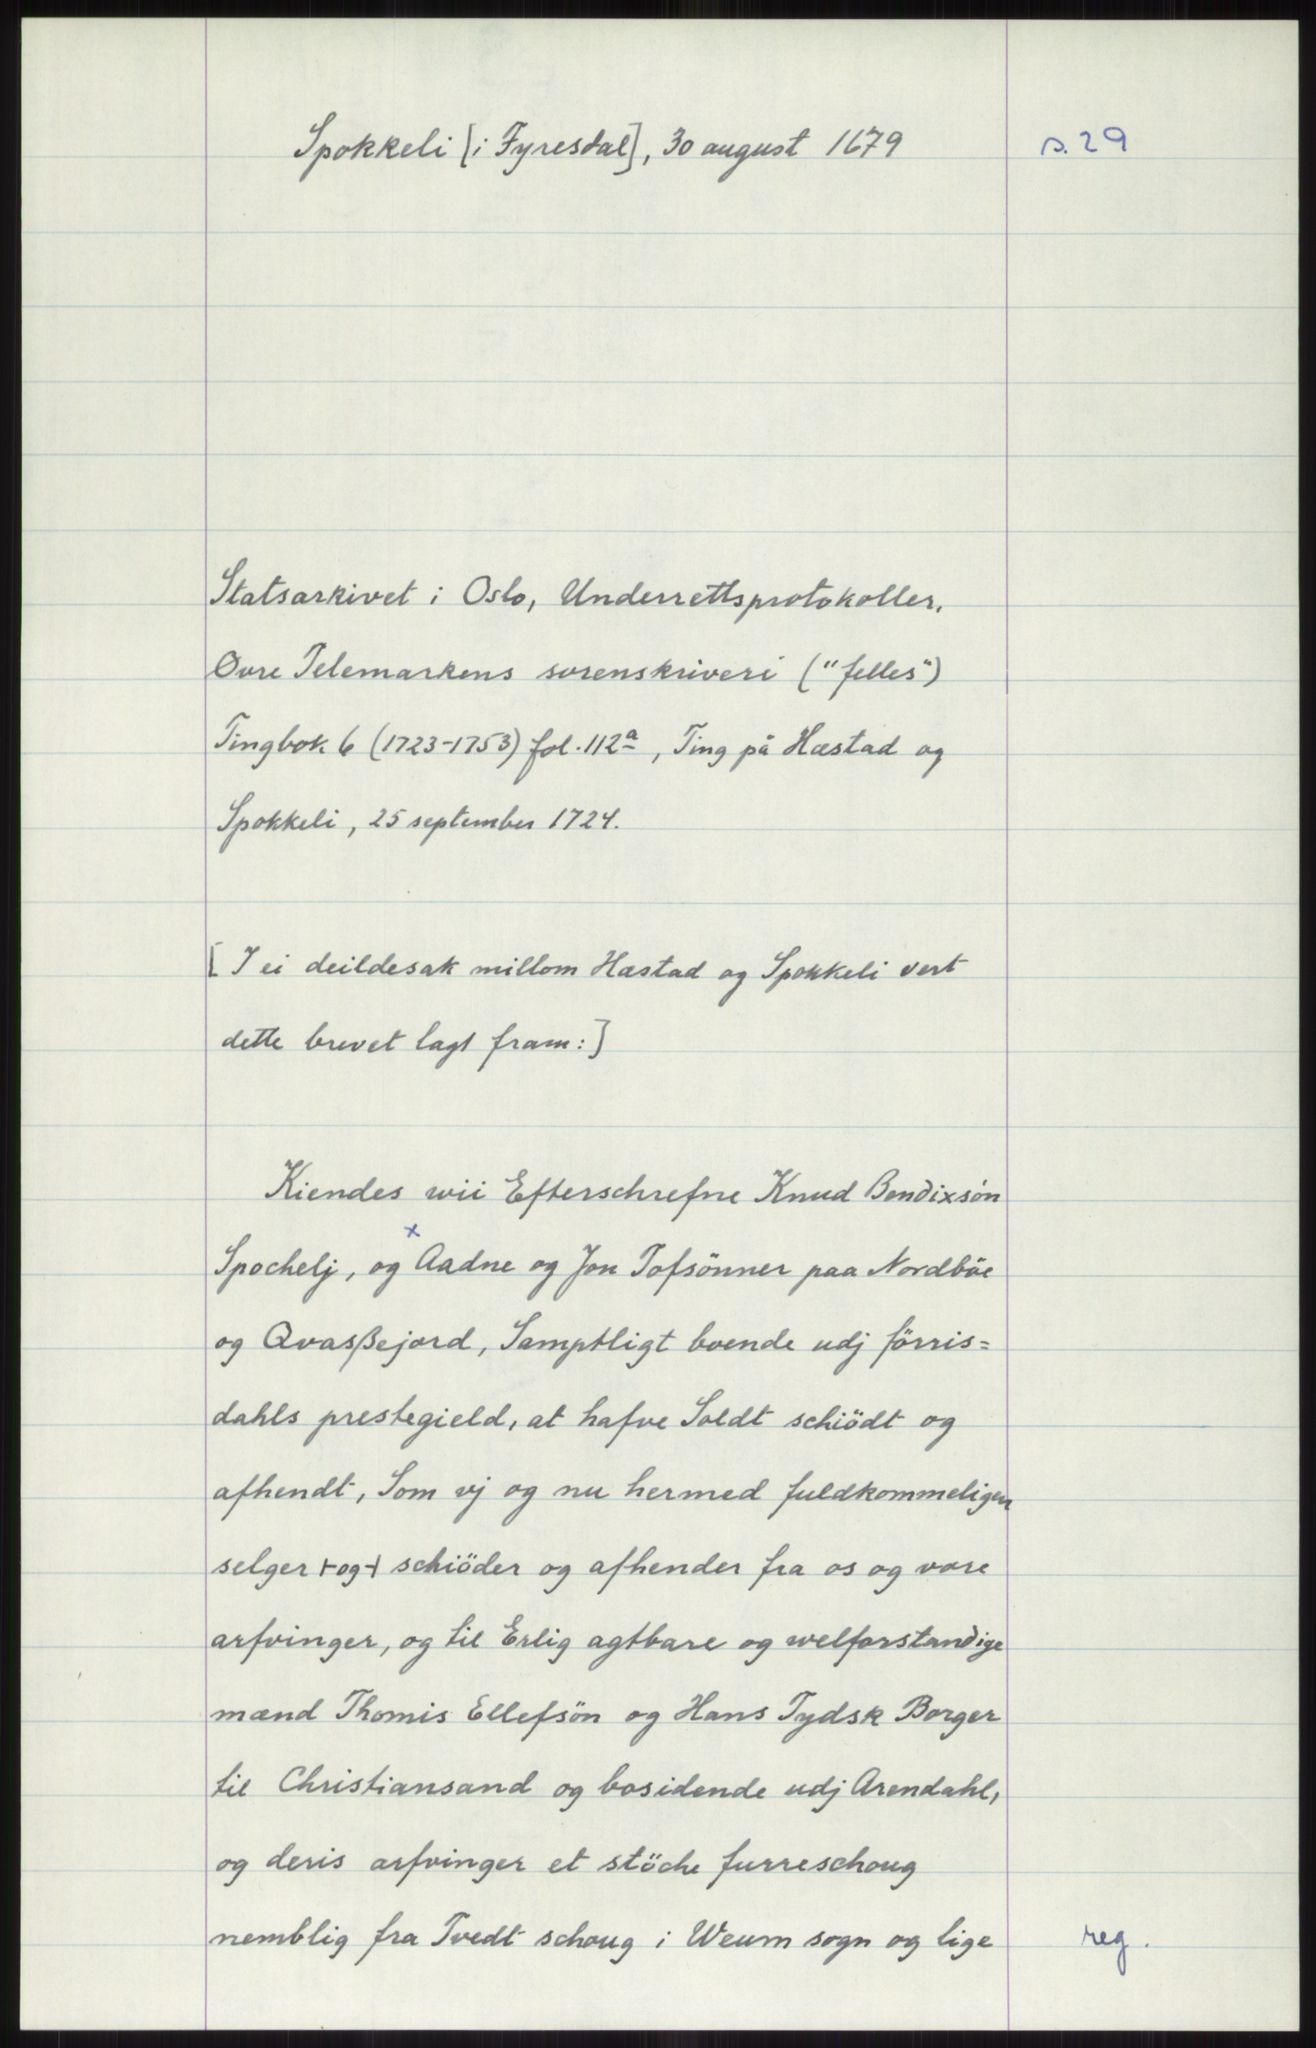 Spokkeli [i Fyresdal], 30 august 1679
s. 29
Statsarkivet i Oslo, Underrettsprotokoller.
Øvre Telemarkens sorenskriveri ("felles")
Tingbok 6 (1723-1753) fol. 112a, Ting på Hæstad og
Spokkeli, 25 september 1724.
[I ei deildesak millom Hæstad og Spokkeli vert
dette brevet lagt fram:]
Kiendes wii Efterschrefne Knud Bendixsön
Spochelj, og x Aadne og Jon Tofsönner paa Nordböe
og Qvasßejord, Samptligt boende udj förris=
dahls prestegield, at hafve Soldt schiödt og
afhendt, Som vj og nu hermed fuldkommeligen
selger ⊢og⊣ schiöder og afhender fra os og vore
arfvinger, og til Erlig agtbare og welforstandige
mænd Thomis Ellefsön og Hans Tydsk Borger
til Christiansand og bosidende udj Arendahl,
og deris arfvinger et stöche furreschoug
nemblig fra Tvedt schoug i Weum sogn og lige
reg.